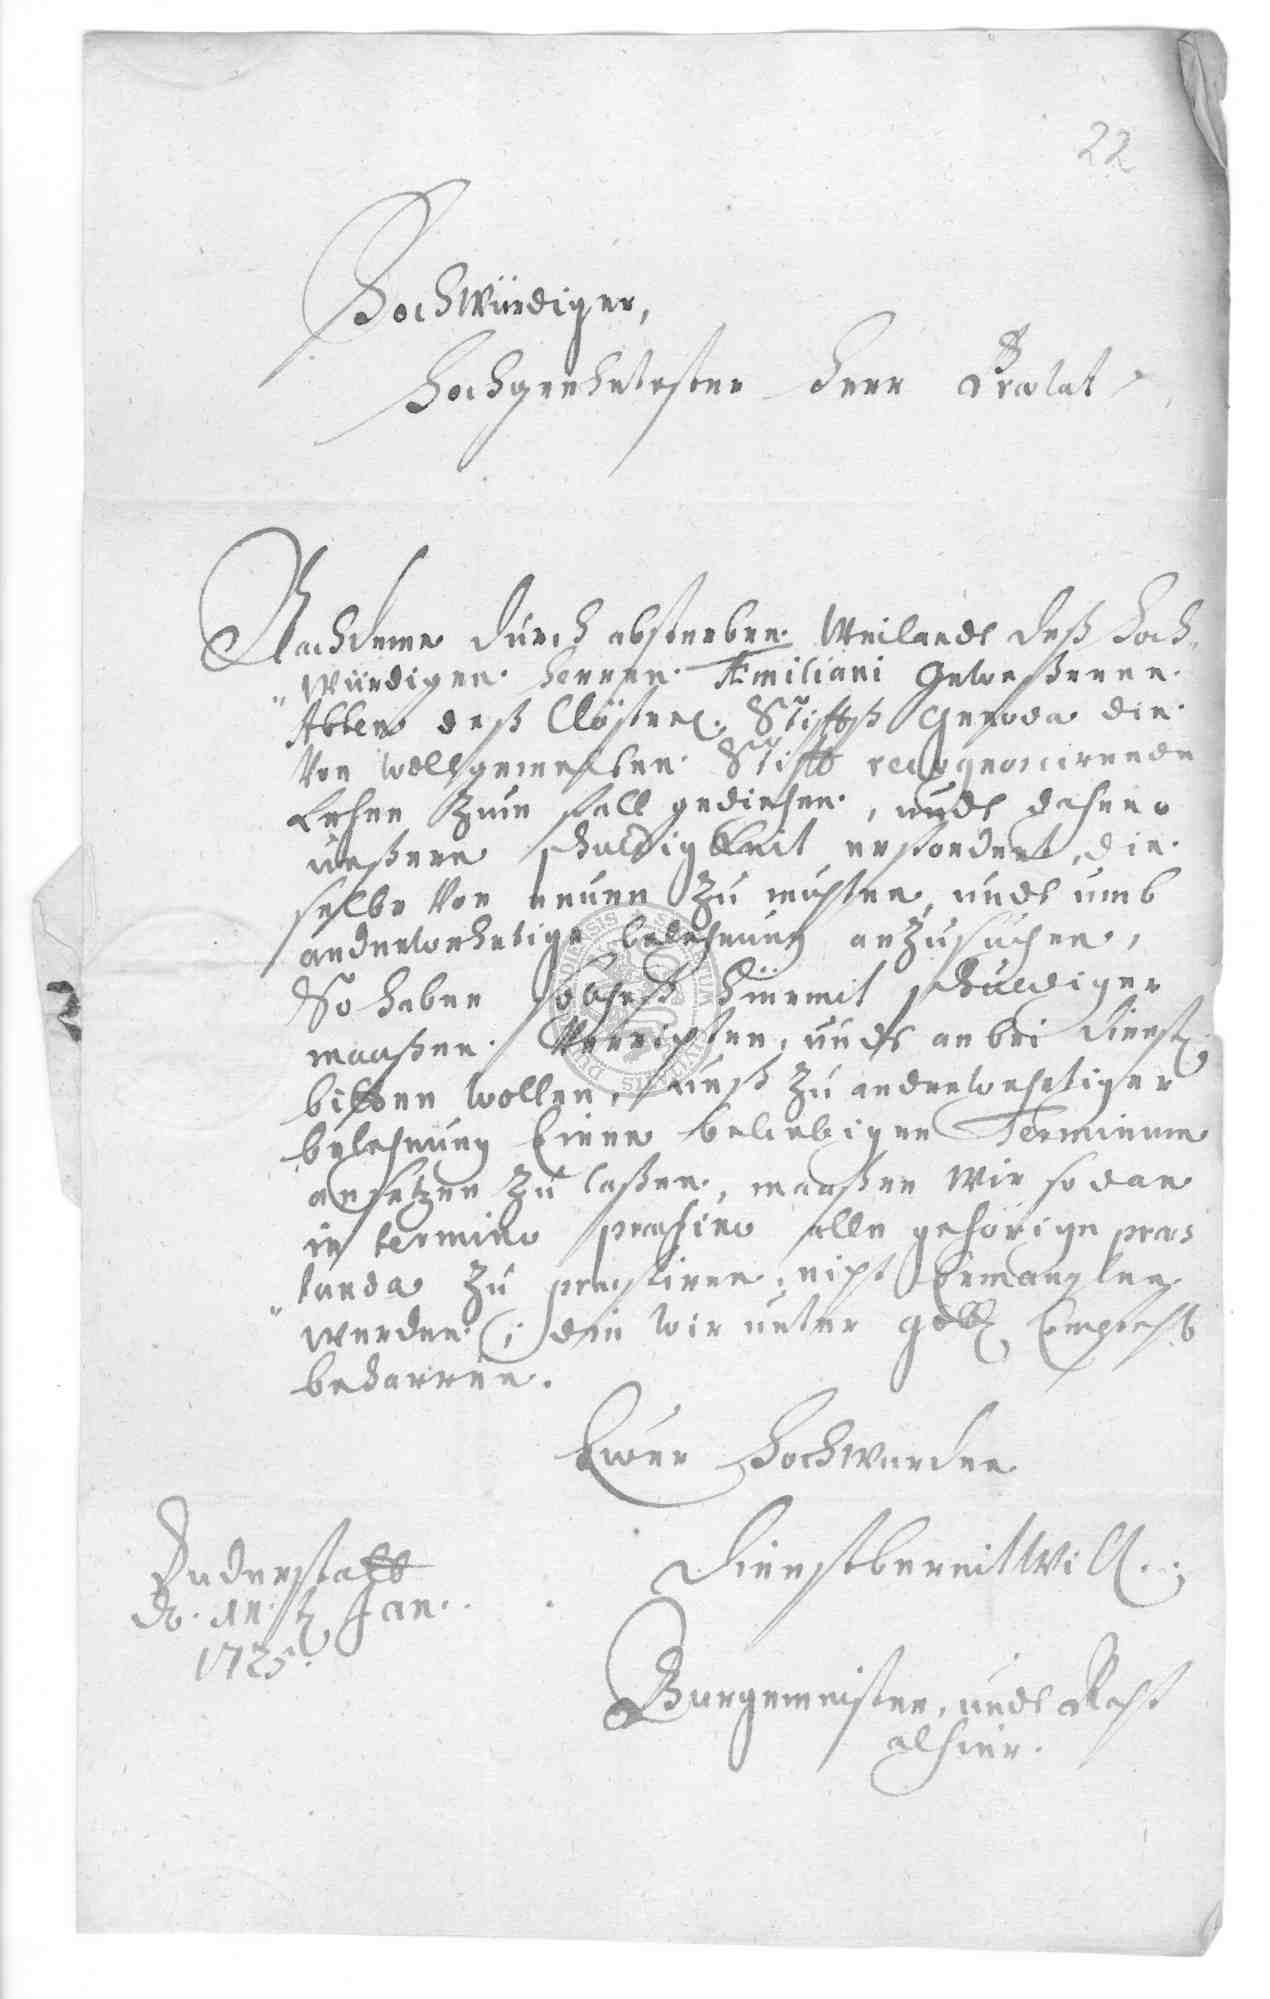 22
Hochwürdiger,
Hochgeehrtester Herr Prælat
Nachdeme durch absterben Weilandt deß Hoch„
„würdigen Herren Æmiliani Geweßenen
Abben deß Clösterl. Stiffts Gerода die
Von wollgemelten Stifft recognoscirende
Lehen zum fall gediehen, undt dahero
unßere schuldigkeit erfordert, die„
selbe Von neuen zu muthen, undt umb
anderwehrtige belehnung anzusuchen,
So haben solcheß hiermit schuldiger
maaßen Verrichten, undt anbei dienstl.
bitten wollen, unß zu anderwehrtiger
belehnung Einen beliebigen Terminum
ansetzen zu laßen, maaßen Wir so dan
in termino præfixo alle gehörige præs„
„tanda zu præstiren, nicht Ermanglen
werden; die wir unter göttl. Empfehl.
beharren.
Ewer Hochwürden
Duderstatt
d. 11. t. Jan.
1725.
Dienstbereitwill.
Burgemeister, undt Raht
alhier.